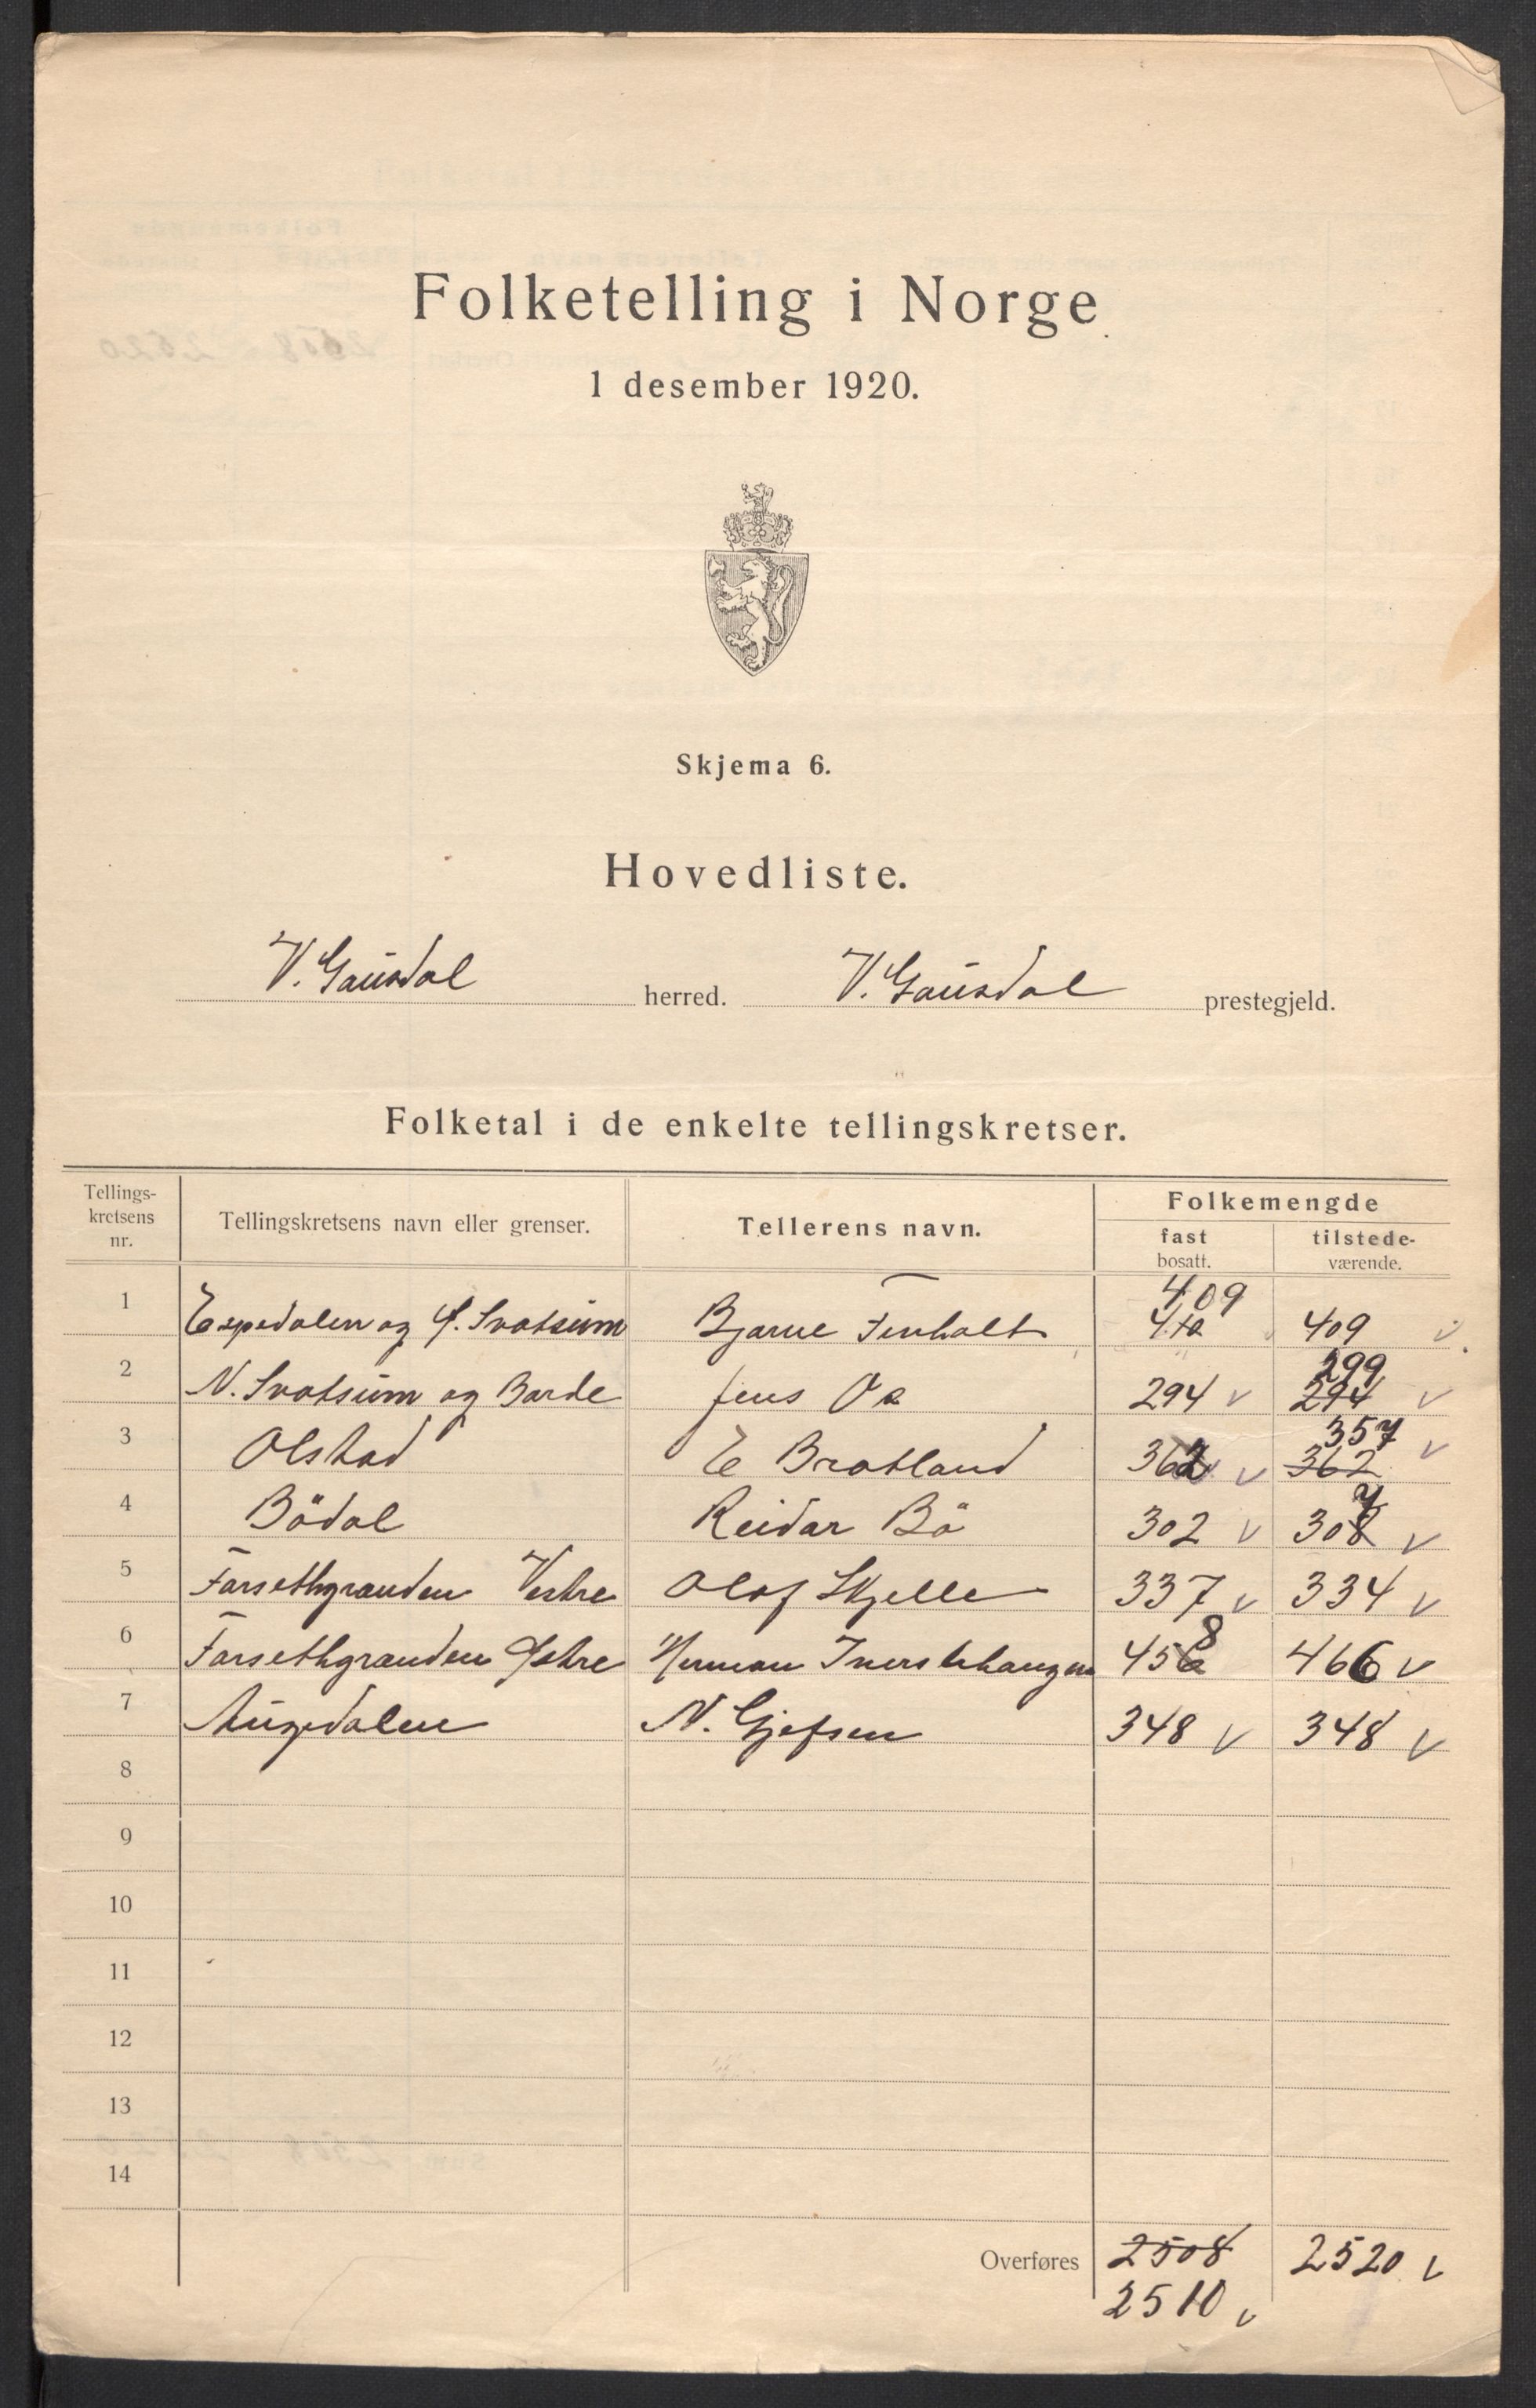 Folketelling i Norge
1 desember 1920.
Skjema 6.
Hovedliste.
V. Gausdal herred. V. Gausdal prestegjeld.
Folketal i de enkelte tellingskretser.
Tellings-kretsens nr. Tellingskretsens navn eller grenser. Tellerens navn. Folkemengde
fast bosatt. tilstede-værende.
409
1 Espedalen og S. Svatsum Bjarne Finholt 410 409 v
299
2 N. Svatsum og Barde Jens Oe 294 v 294 v
357
3 Olstad E Bratland 362 v 362 v
7
4 Bödal Reidar Bö 302 v 308 v
5 Forsethgranden Vestre Olaf Skjelle 337 v 334 v
8
6 Forsethgranden Østre Herman Iverslehaugen 456 466 v
7 Auggedalen N. Gjefsen 348 v 348 v
8
9
10
11
12
13
14
Overføres 2508 2520 v
2510 v